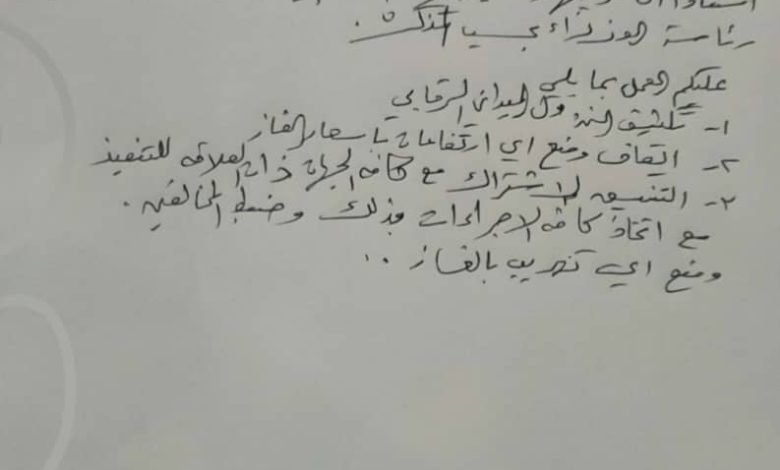 رئاسة الوزراء بحسب المذكرة.
عليكم العمل بما يلي
١- تكثيف النزول الميداني الرقابي
٢- ايقاف ومنع اي ارتفاعات باسعار الغاز
٣- التنسيق والاشتراك مع كافه الجهات ذات العلاقه للتنفيذ
مع اتخاذ كافه الاجراءات بذلك وضبط المخالفين.
ومنع اي تهريب بالغاز..